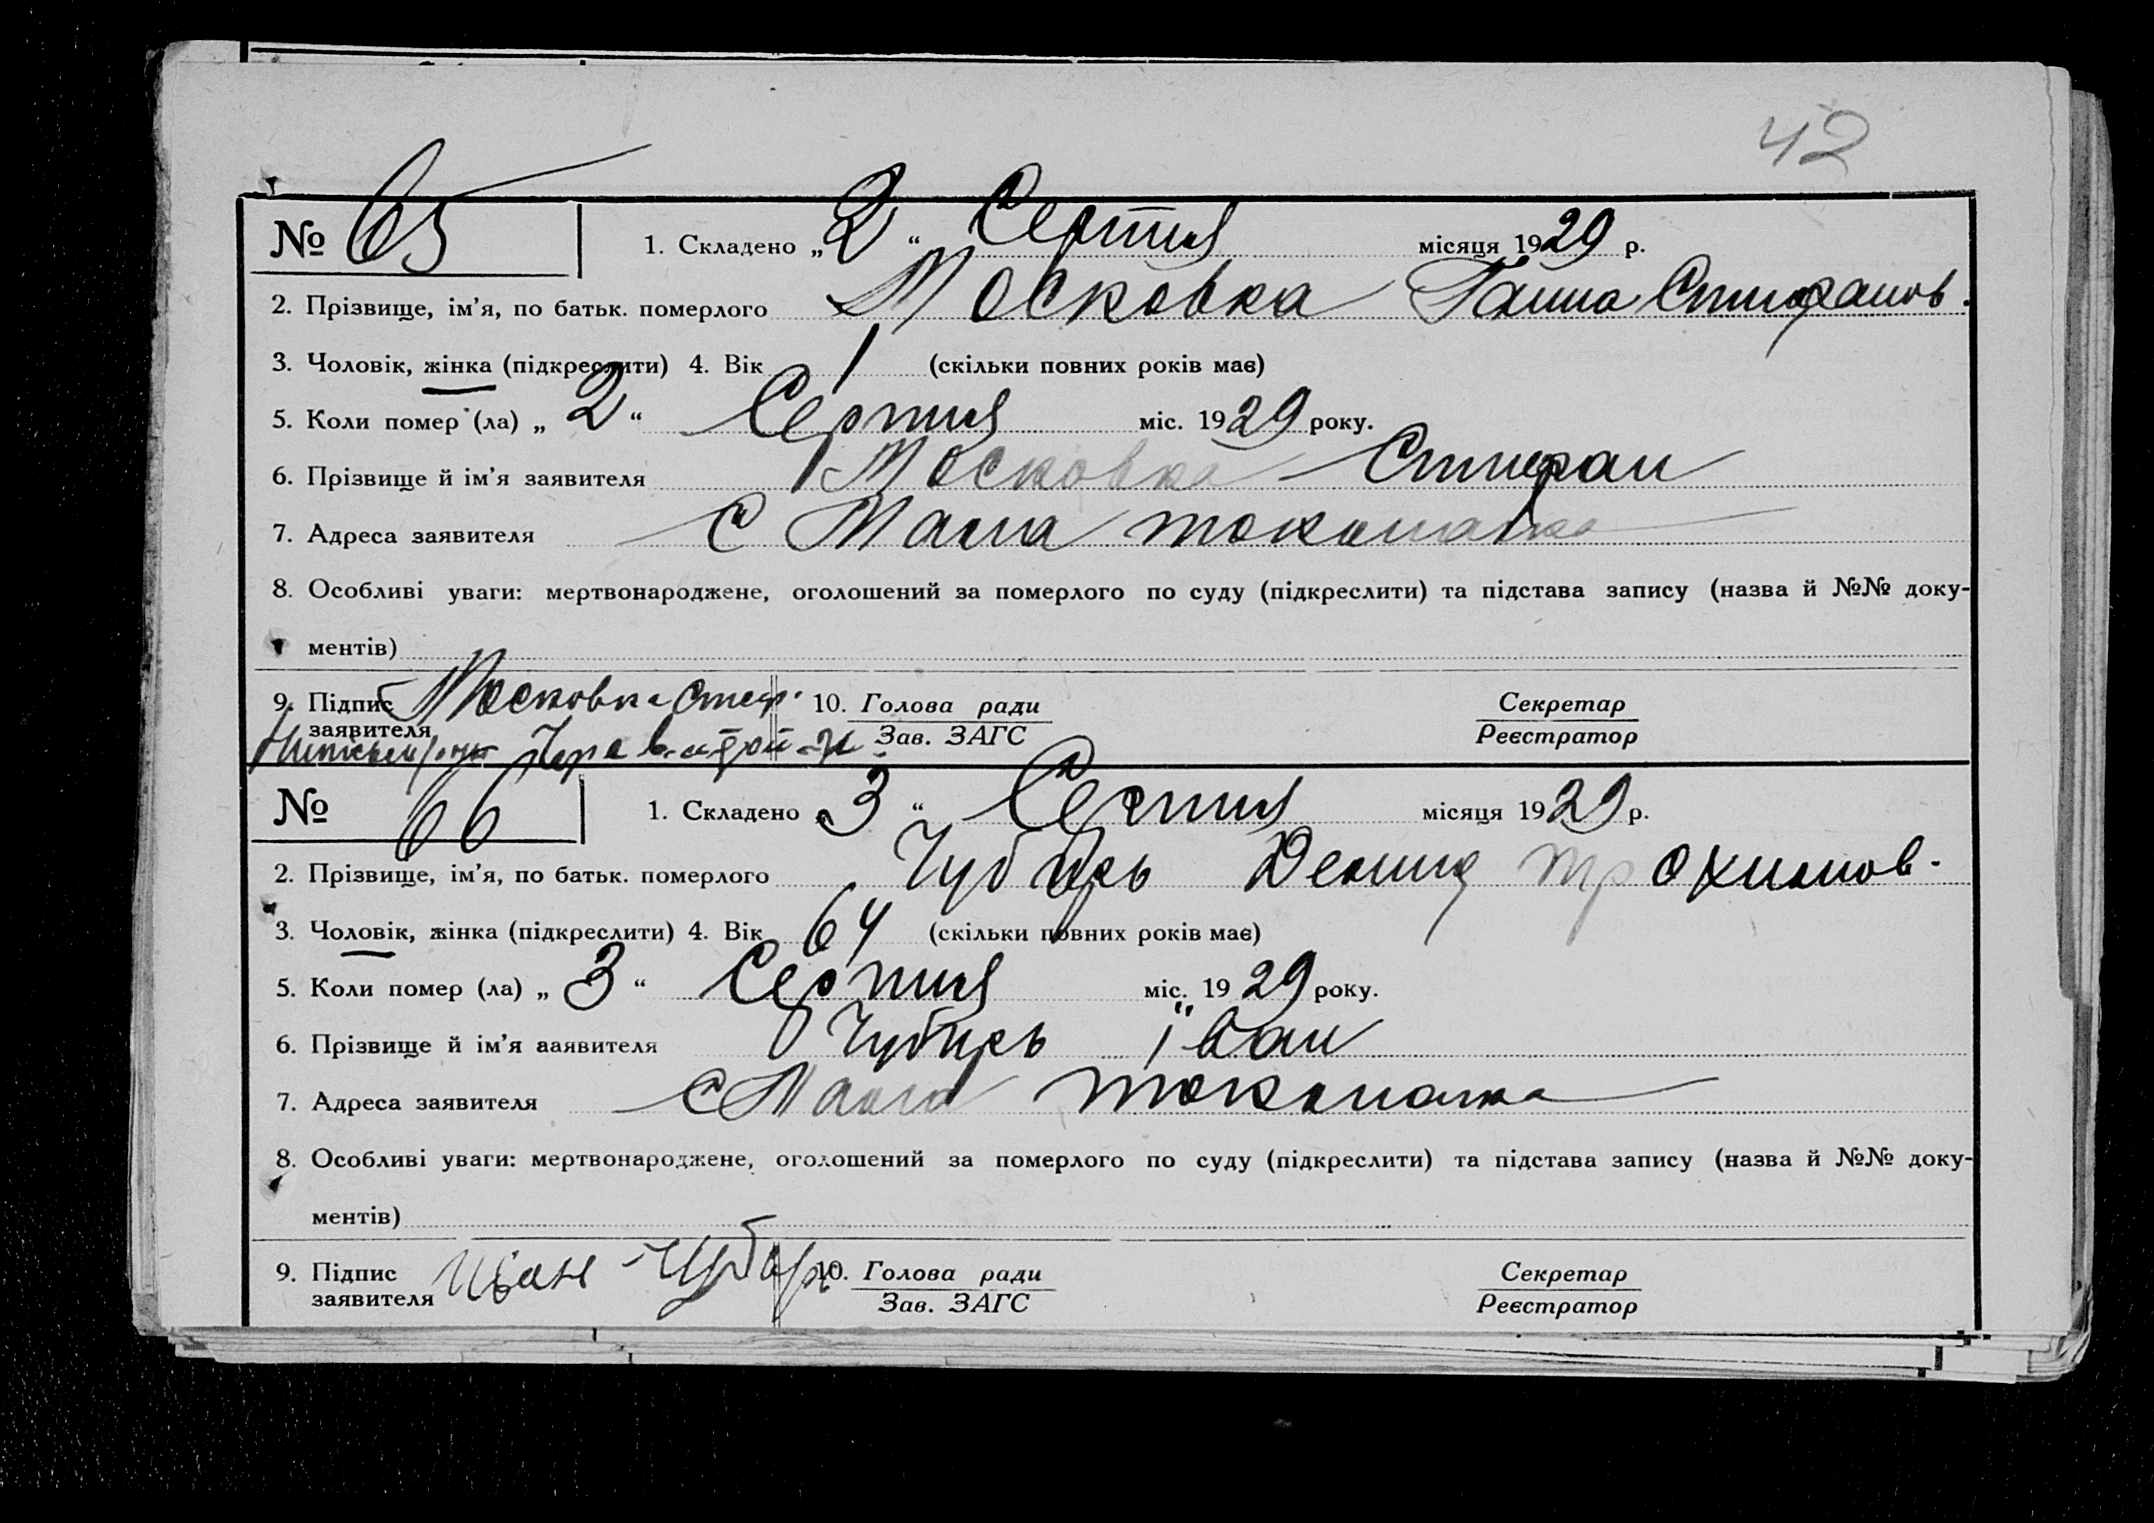 42
№ 65 1. Складено „2“ Серпня місяця 1929 р.
2. Прізвище, ім’я, по батьк. померлого Московка Ганна Стифанов.
3. Чоловік, жінка (підкреслити) 4. Вік 1 (скільки повних років має)
5. Коли помер (ла) „2“ Серпня міс. 1929 року.
6. Прізвище й ім’я заявителя Московка Стифан
7. Адреса заявителя С Мала токмачка
8. Особливі уваги: мертвонароджене, оголошений за померлого по суду (підкреслити) та підстава запису (назва й №№ доку-
ментів)
9. Підпис Московка Стеф. 10. Голова ради Секретар
заявителя Зав. ЗАГС Реєстратор
№ 66 1. Складено „3“ Серпня місяця 1929 р.
2. Прізвище, ім’я, по батьк. померлого Чубирь Демид трохимов.
3. Чоловік, жінка (підкреслити) 4. Вік 64 (скільки повних років має)
5. Коли помер (ла) „3“ Серпня міс. 1929 року.
6. Прізвище й ім’я заявителя Чубирь їван
7. Адреса заявителя С Мала токмачка
8. Особливі уваги: мертвонароджене, оголошений за померлого по суду (підкреслити) та підстава запису (назва й №№ доку-
ментів)
9. Підпис Иван Чубарь 10. Голова ради Секретар
заявителя Зав. ЗАГС Реєстратор